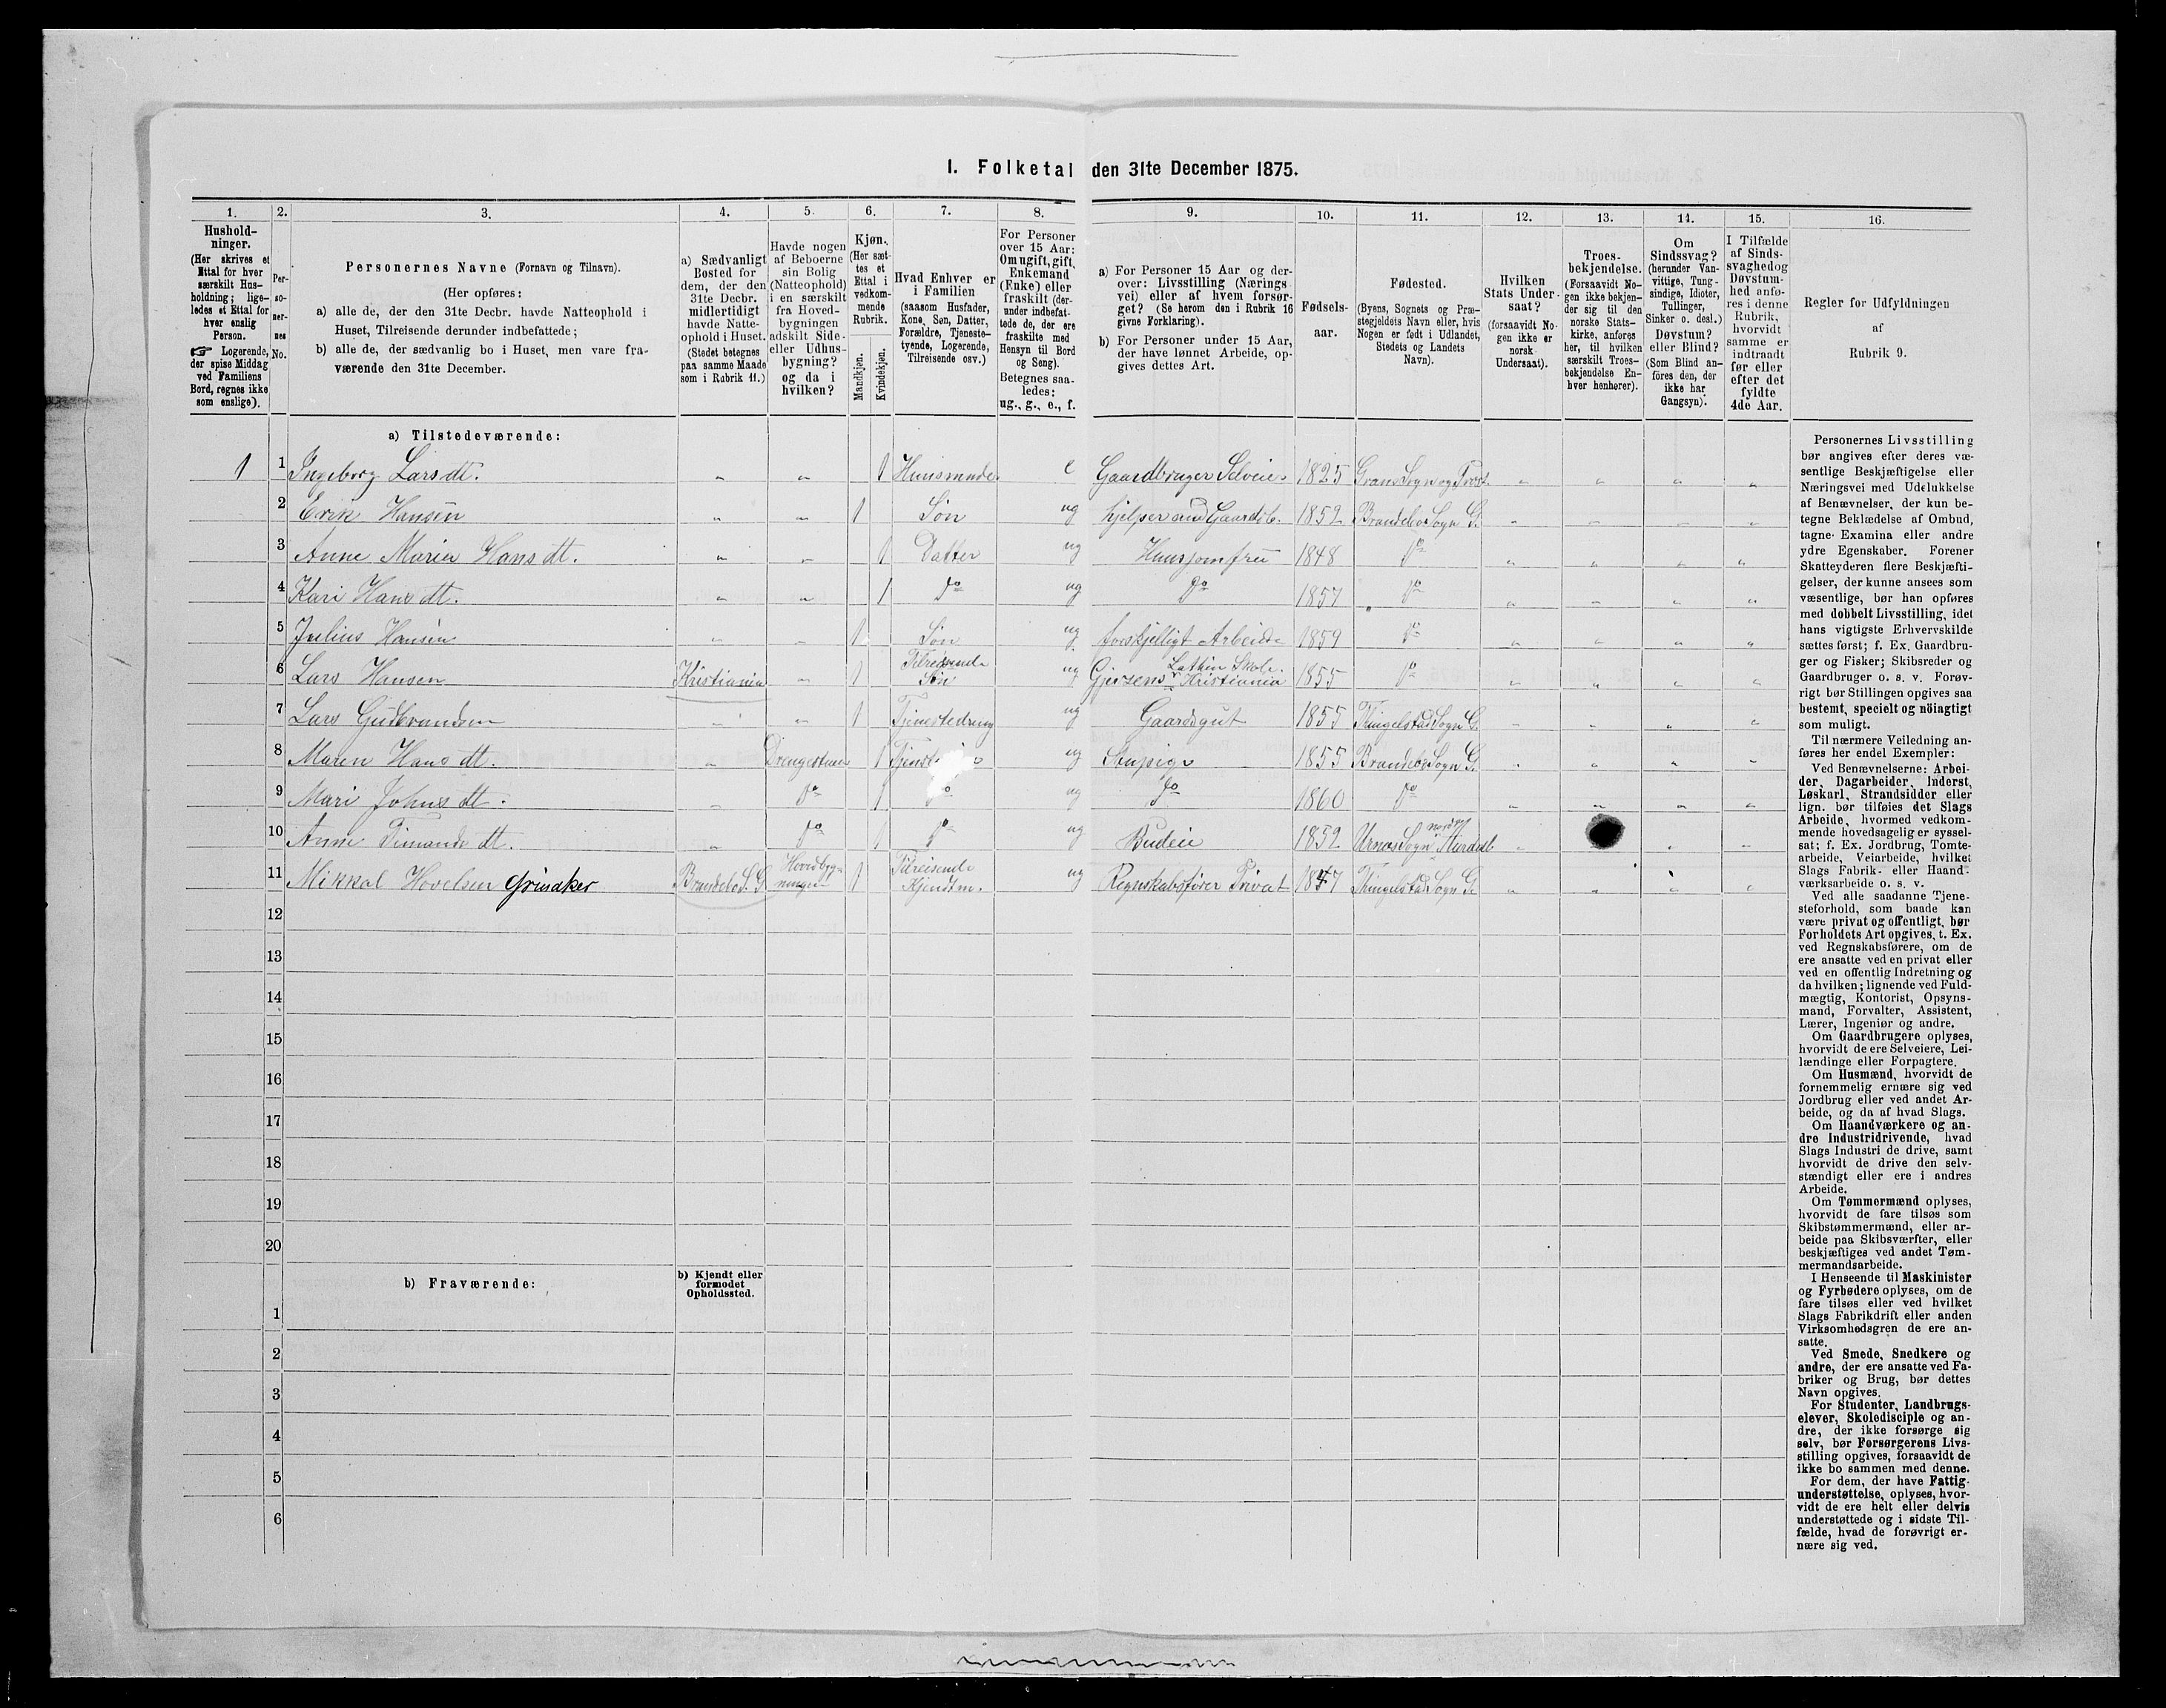 I. Folketal den 31te December 1875.
1. 2. 3. 4. 5. 6. 7. 8. 9. 10. 11. 12. 13. 14. 15. 16.
Hushold-
ninger.
(Her skrives et
Ettal for hver
særskilt Hus-
holdning; lige-
ledes et Ettal for
hver enslig
Person.
☞ Logerende,
der spise Middag
ved Familiens
Bord, regnes ikke
som enslige).
Per-
so-
ner-
nes
No.
Personernes Navne (Fornavn og Tilnavn).
(Her opføres:
a) alle de, der den 31te Decbr. havde Natteophold i
Huset, Tilreisende derunder indbefattede;
b) alle de, der sædvanlig bo i Huset, men vare fra-
værende den 31te December.
a) Sædvanligt
Bosted for
dem, der den
31te Decbr.
midlertidigt
havde Natte-
ophold i Huset.
(Stedet betegnes
paa samme Maade
som i Rubrik 11.)
Havde nogen
af Beboerne
sin Bolig
(Natteophold)
i en særskilt
fra Hoved-
bygningen
adskilt Side-
eller Udhus-
bygning?
og da i
hvilken?
Kjøn.
(Her sæt-
tes et
Ettal i
vedkom-
mende
Rubrik.
Mandkjøn.
Kvindekjøn.
Hvad Enhver er
i Familien
(saasom Husfader,
Kone, Søn, Datter,
Forældre, Tjeneste-
tyende, Logerende,
Tilreisende osv.)
For Personer
over 15 Aar:
Om ugift, gift,
Enkemand
(Enke) eller
fraskilt (der-
under indbefat-
tede de, der ere
fraskilte med
Hensyn til Bord
og Seng).
Betegnes saa-
ledes:
ug., g., e., f.
a) For Personer 15 Aar og der-
over: Livsstilling (Nærings
vei) eller af hvem forsør-
get? (Se herom den i Rubrik 16
givne Forklaring).
b) For Personer under 15 Aar,
der have lønnet Arbeide, op-
gives dettes Art.
Fødsels-
aar.
Fødested.
(Byens, Sognets og Præ-
stegjeldets Navn eller, hvis
Nogen er født i Udlandet,
Stedets og Landets
Navn).
Hvilken
Stats Under-
saat?
(forsaavidt No-
gen ikke er
norsk
Undersaat).
Troes-
bekjendelse.
(Forsaavidt No-
gen ikke bekjen-
der sig til den
norske Stats-
kirke, anføres
her, til hvilken
særskilt Troes-
bekjendelse En-
hver henhører).
Om
Sindssvag?
(herunder Van-
vittige, Tung-
sindige, Idioter,
Tullinger,
Sinker o. desl.)
Døvstum?
eller Blind?
(Som Blind an-
føres den, der
ikke har
Gangsyn).
I Tilfælde
af Sinds-
svaghed og
Døvstum-
hed anfø-
res i denne
Rubrik,
hvorvidt
samme er
indtraadt
før eller
efter det
fyldte
4de Aar.
Regler for Udfyldningen
af
Rubrik 9.
a) Tilstedeværende:
1 1 Ingeborg Larsdt. " " 1 Huusmoder e Gaardbruger Selveier 1825 Grans Sogn og " " " "
2 Erik Hansen " " 1 Søn ug hjelper med Gaardsb. 1852 Brandebo Sogn G. " " " "
3 Anne Maria Hansdt. " " 1 Datter ug Huusjomfru 1848 Do " " " "
4 Kari Hansdt. " " 1 Do ug Do 1857 Do " " " "
5 Julius Hansen " " 1 Søn ug forskjelligt Arbeide 1859 Do " " " "
6 Lars Hansen Kristiania " 1 Tilreisende Søn ug Gjerzens Latin Skole Kristiania 1855 Do " " " "
7 Lars Gudbrandsen " " 1 Tjenestedreng ug Gaardsgut 1855 Thingelstad Sogn G. " " " "
8 Maren Hansdt. " Drengestuen 1 ug Stuepige 1855 Brandebo Sogn G. " " " "
9 Mari Johnsdt. " Do 1 Do ug Do 1860 Do " " " "
10 Anne dt. " Do 1 Do ug Budeie 1852 Urnes Sogn " "
11 Mikkal Hovelsen Grinaker Brandebo S. G Hovedbyg-
ningen 1 Tilreisende
Kjendtm. ug Regnskabsfører Privat 1847 Thingelstad Sogn G. " " " "
12
13
14
15
16
17
18
19
20
b) Fraværende:
b) Kjendt eller
formodet
Opholdssted.
1
2
3
4
5
6
Personernes Livsstilling
bør angives efter deres væ-
sentlige Beskjæftigelse eller
Næringsvei med Udelukkelse
af Benævnelser, der kun be-
tegne Beklædelse af Ombud,
tagne Examina eller andre
ydre Egenskaber. Forener
Skatteyderen flere Beskjæfti-
gelser, der kunne ansees som
væsentlige, bør han opføres
med dobbelt Livsstilling, idet
hans vigtigste Erhvervskilde
sættes først; f. Ex. Gaardbru-
ger og Fisker; Skibsreder og
Gaardbruger o. s. v. Forøv-
rigt bør Stillingen opgives saa
bestemt, specielt og nöiagtigt
som muligt.
Til nærmere Veiledning an-
føres her endel Exempler:
Ved Benævnelserne: Arbei-
der, Dagarbeider, Inderst,
Løskarl, Strandsidder eller
lign. bør tilføies det Slags
Arbeide, hvormed vedkom-
mende hovedsagelig er syssel-
sat; f. Ex. Jordbrug, Tomte-
arbeide, Veiarbeide, hvilket
Slags Fabrik- eller Haand-
værksarbeide o. s. v.
Ved alle saadanne Tjene-
steforhold, som baade kan
være privat og offentligt, bør
Forholdets Art opgives, t. Ex.
ved Regnskabsførere, om de
ere ansatte ved en privat eller
ved en offentlig Indretning og
da hvilken; lignende ved Fuld-
mægtig, Kontorist, Opsyns-
mand, Forvalter, Assistent,
Lærer, Ingeniør og andre.
Om Gaardbrugere oplyses,
hvorvidt de ere Selveiere, Lei-
lændinge eller Forpagtere.
Om Husmænd, hvorvidt de
fornemmelig ernære sig ved
Jordbrug eller ved andet Ar-
beide, og da af hvad Slags.
Om Haandværkere og an-
dre Industridrivende, hvad
Slags Industri de drive, samt
hvorvidt de drive den selv-
stændigt eller ere i andres
Arbeide.
Om Tømmermænd oplyses,
hvorvidt de fare tilsøs som
Skibstømmermænd, eller ar-
beide paa Skibsværfter, eller
beskjæftiges ved andet Tøm-
mermandsarbeide.
I Henseende til Maskinister
og Fyrbødere oplyses, om de
fare tilsøs eller ved hvilket
Slags Fabrikdrift eller anden
Virksomhedsgren de ere an-
satte.
Ved Smede, Snedkere og
andre, der ere ansatte ved Fa-
briker og Brug, bør dettes
Navn opgives.
For Studenter, Landbrugs-
elever, Skoledisciple og an-
dre, der ikke forsørge sig
selv, bør Forsørgerens Livs-
stilling opgives, forsaavidt de
ikke bo sammen med denne.
For dem, der have Fattig-
understøttelse, oplyses, hvor-
vidt de ere helt eller delvis
understøttede og i sidste Til-
fælde, hvad de forøvrigt er-
nære sig ved.